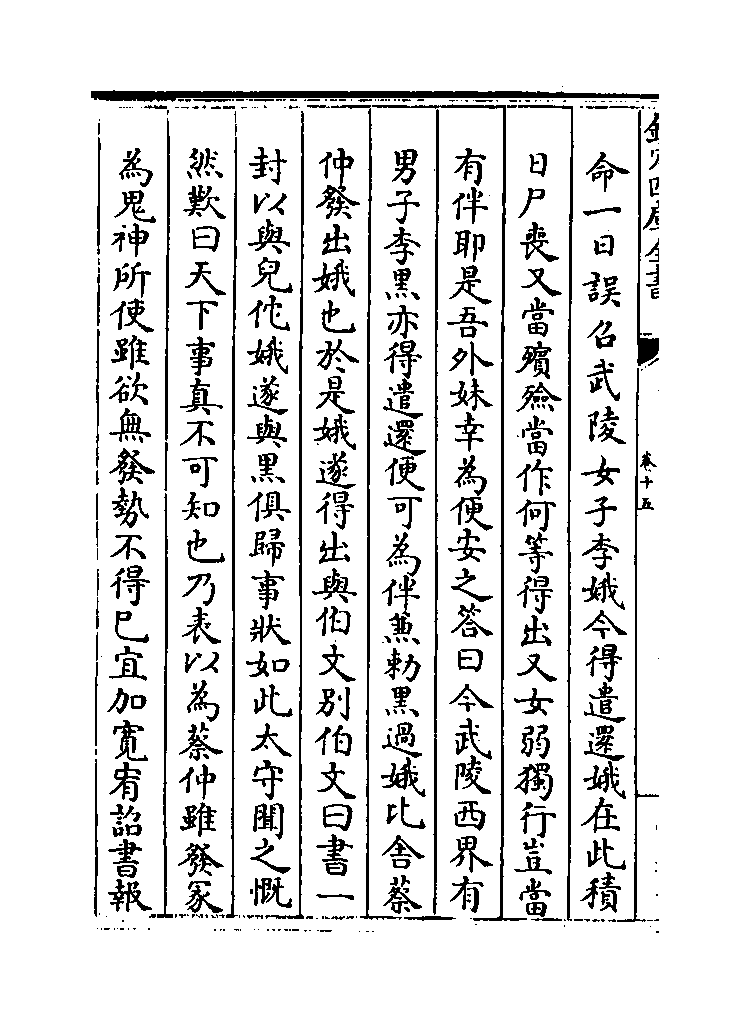 欽定四庫全書
卷十五
命一日誤召武陵女子李娥今得遣還娥在此積
日尸喪又當殯殮當作何等得出又女弱獨行豈當
有伴耶是吾外妹幸為便安之答曰今武陵西界有
男子李黑亦得遣還便可為伴兼勅黑過娥比舍蔡
仲發出娥也於是娥遂得出與伯文别伯文曰書一
封以與兒佗娥遂與黑俱歸事狀如此太守聞之慨
然歎曰天下事真不可知也乃表以為蔡仲雖發冢
為鬼神所使雖欲無發勢不得已宜加寛宥詔書報